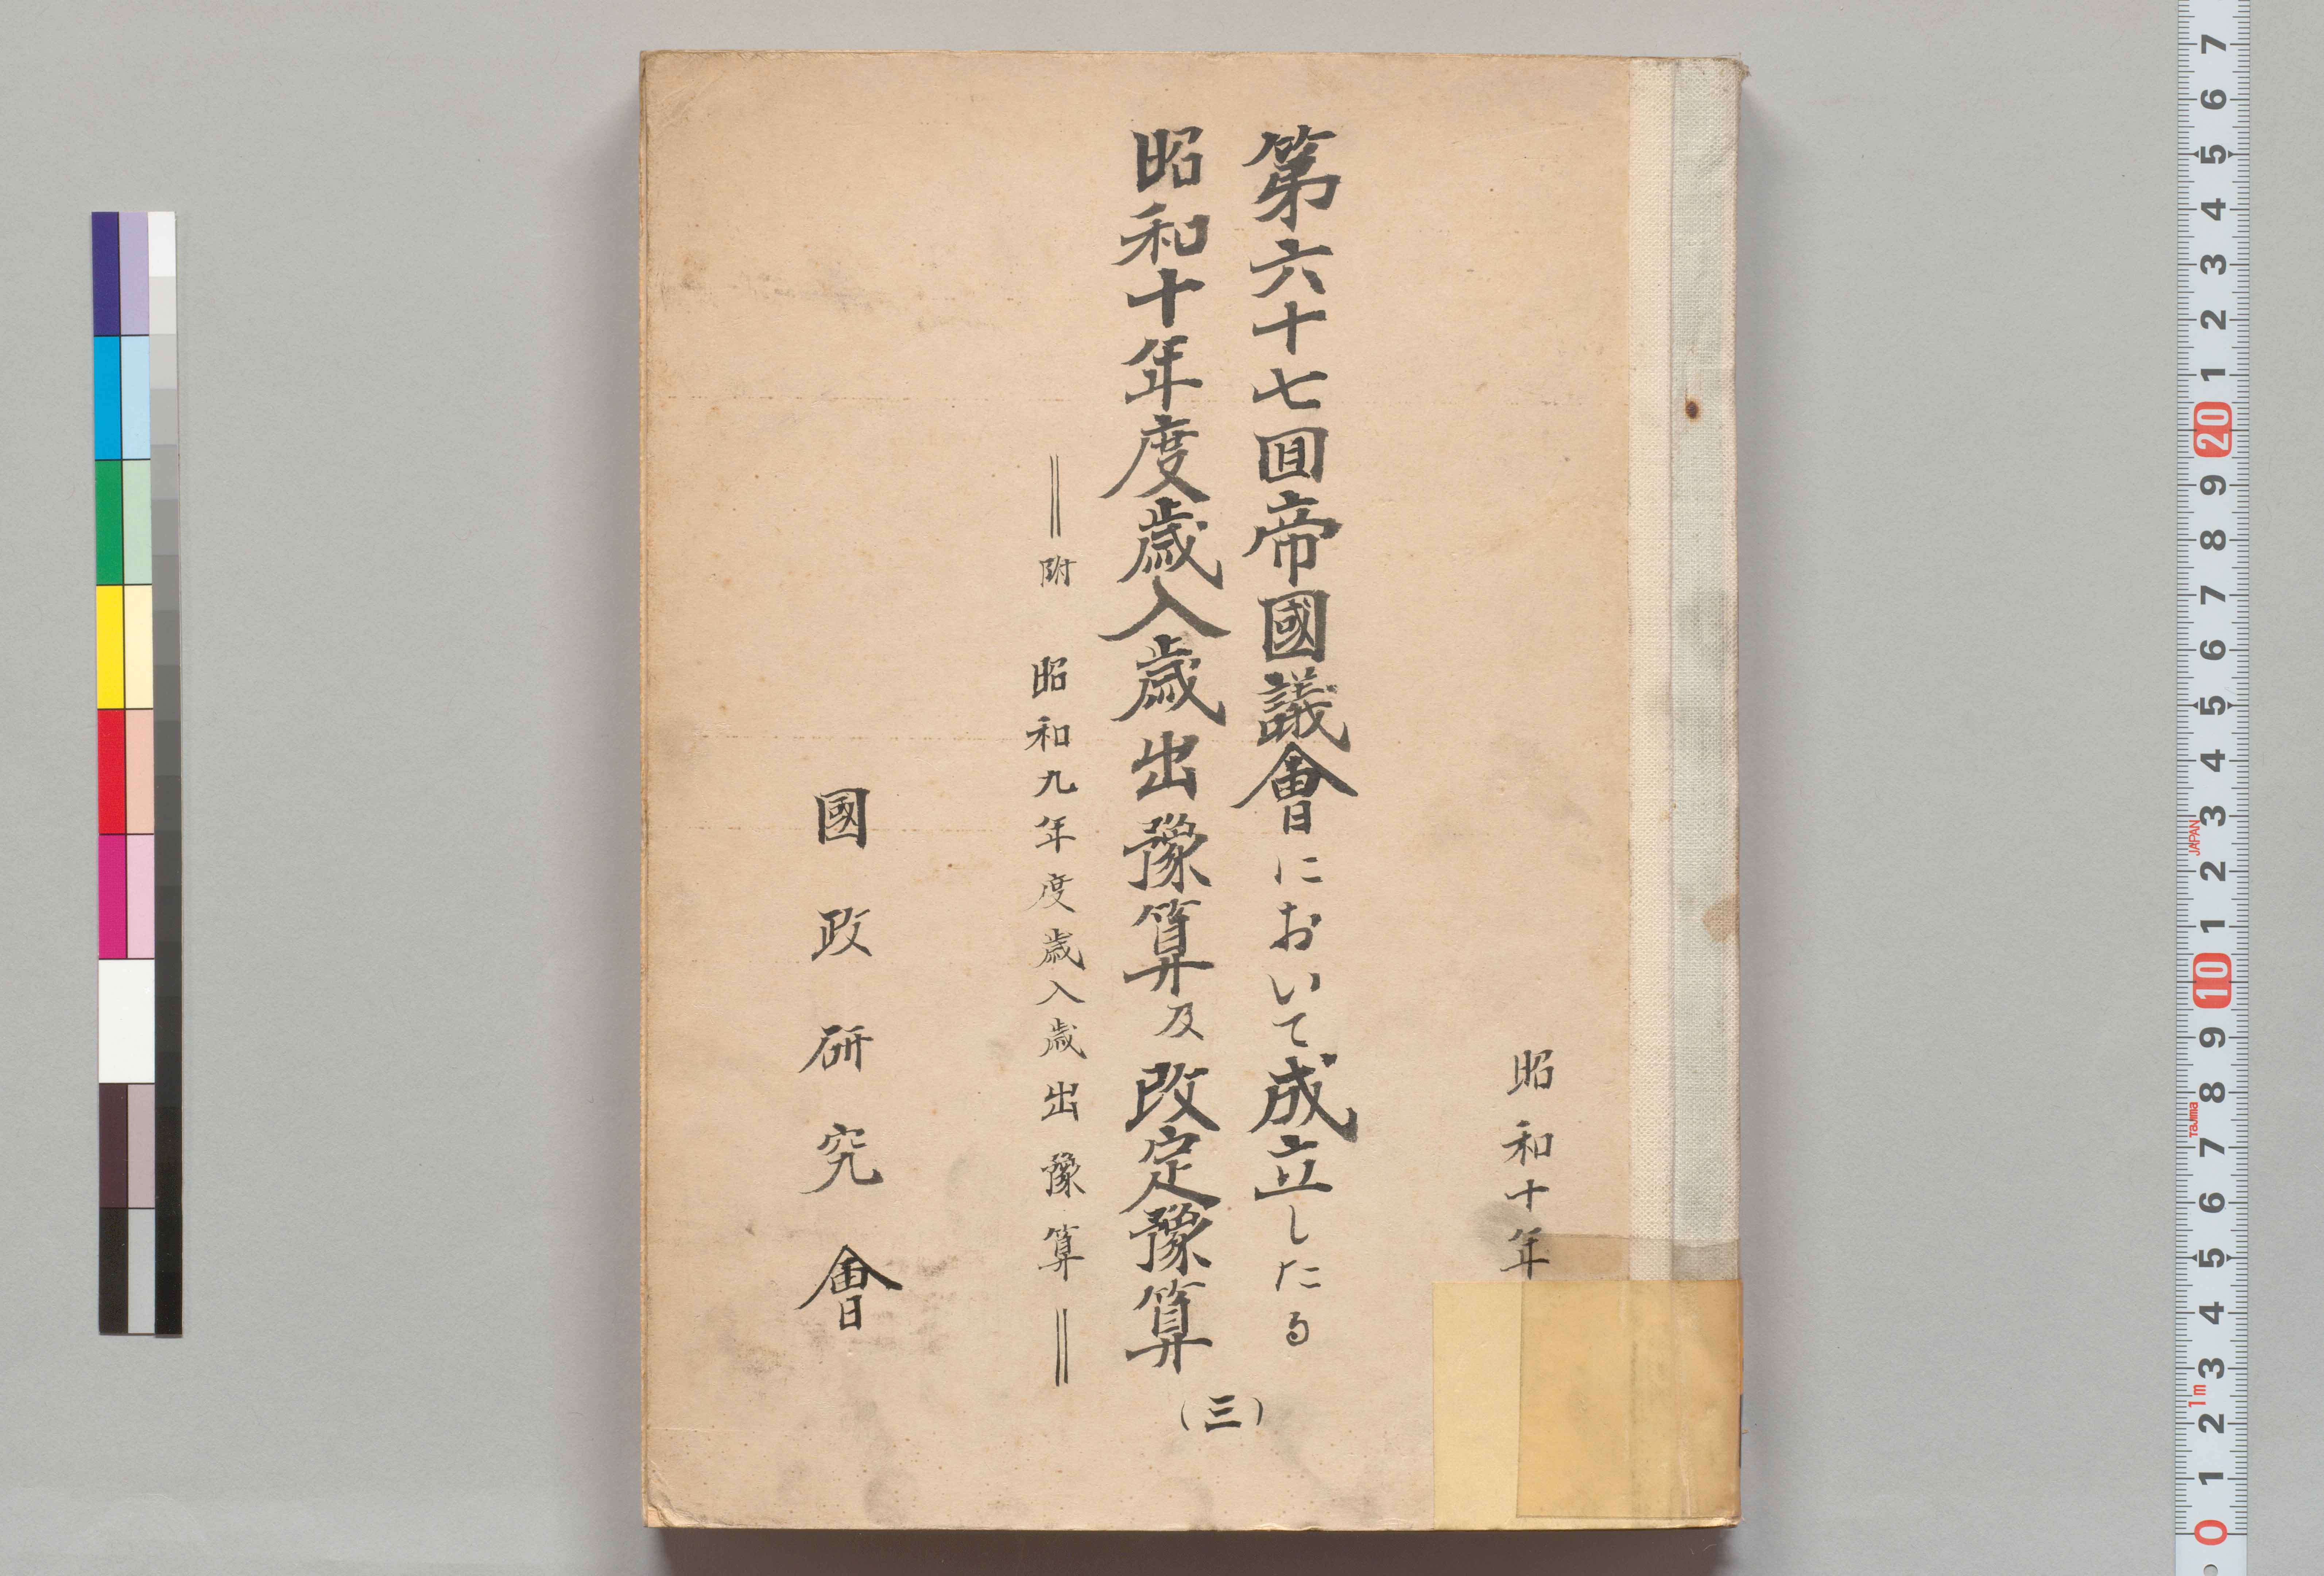 昭和十年
第六十七囘帝國議會において成立したる
昭和十年度歲入歲出豫算及改定豫算(三)
‖附 昭和九年度歲入歲出豫算‖
國政硏究會
7
6
5
4
3
2
1
20
9
8
7
6
5
4
3
JAPAN
2
1
10
9
8
Tajima
7
6
5
4
3
1m
2
1
0